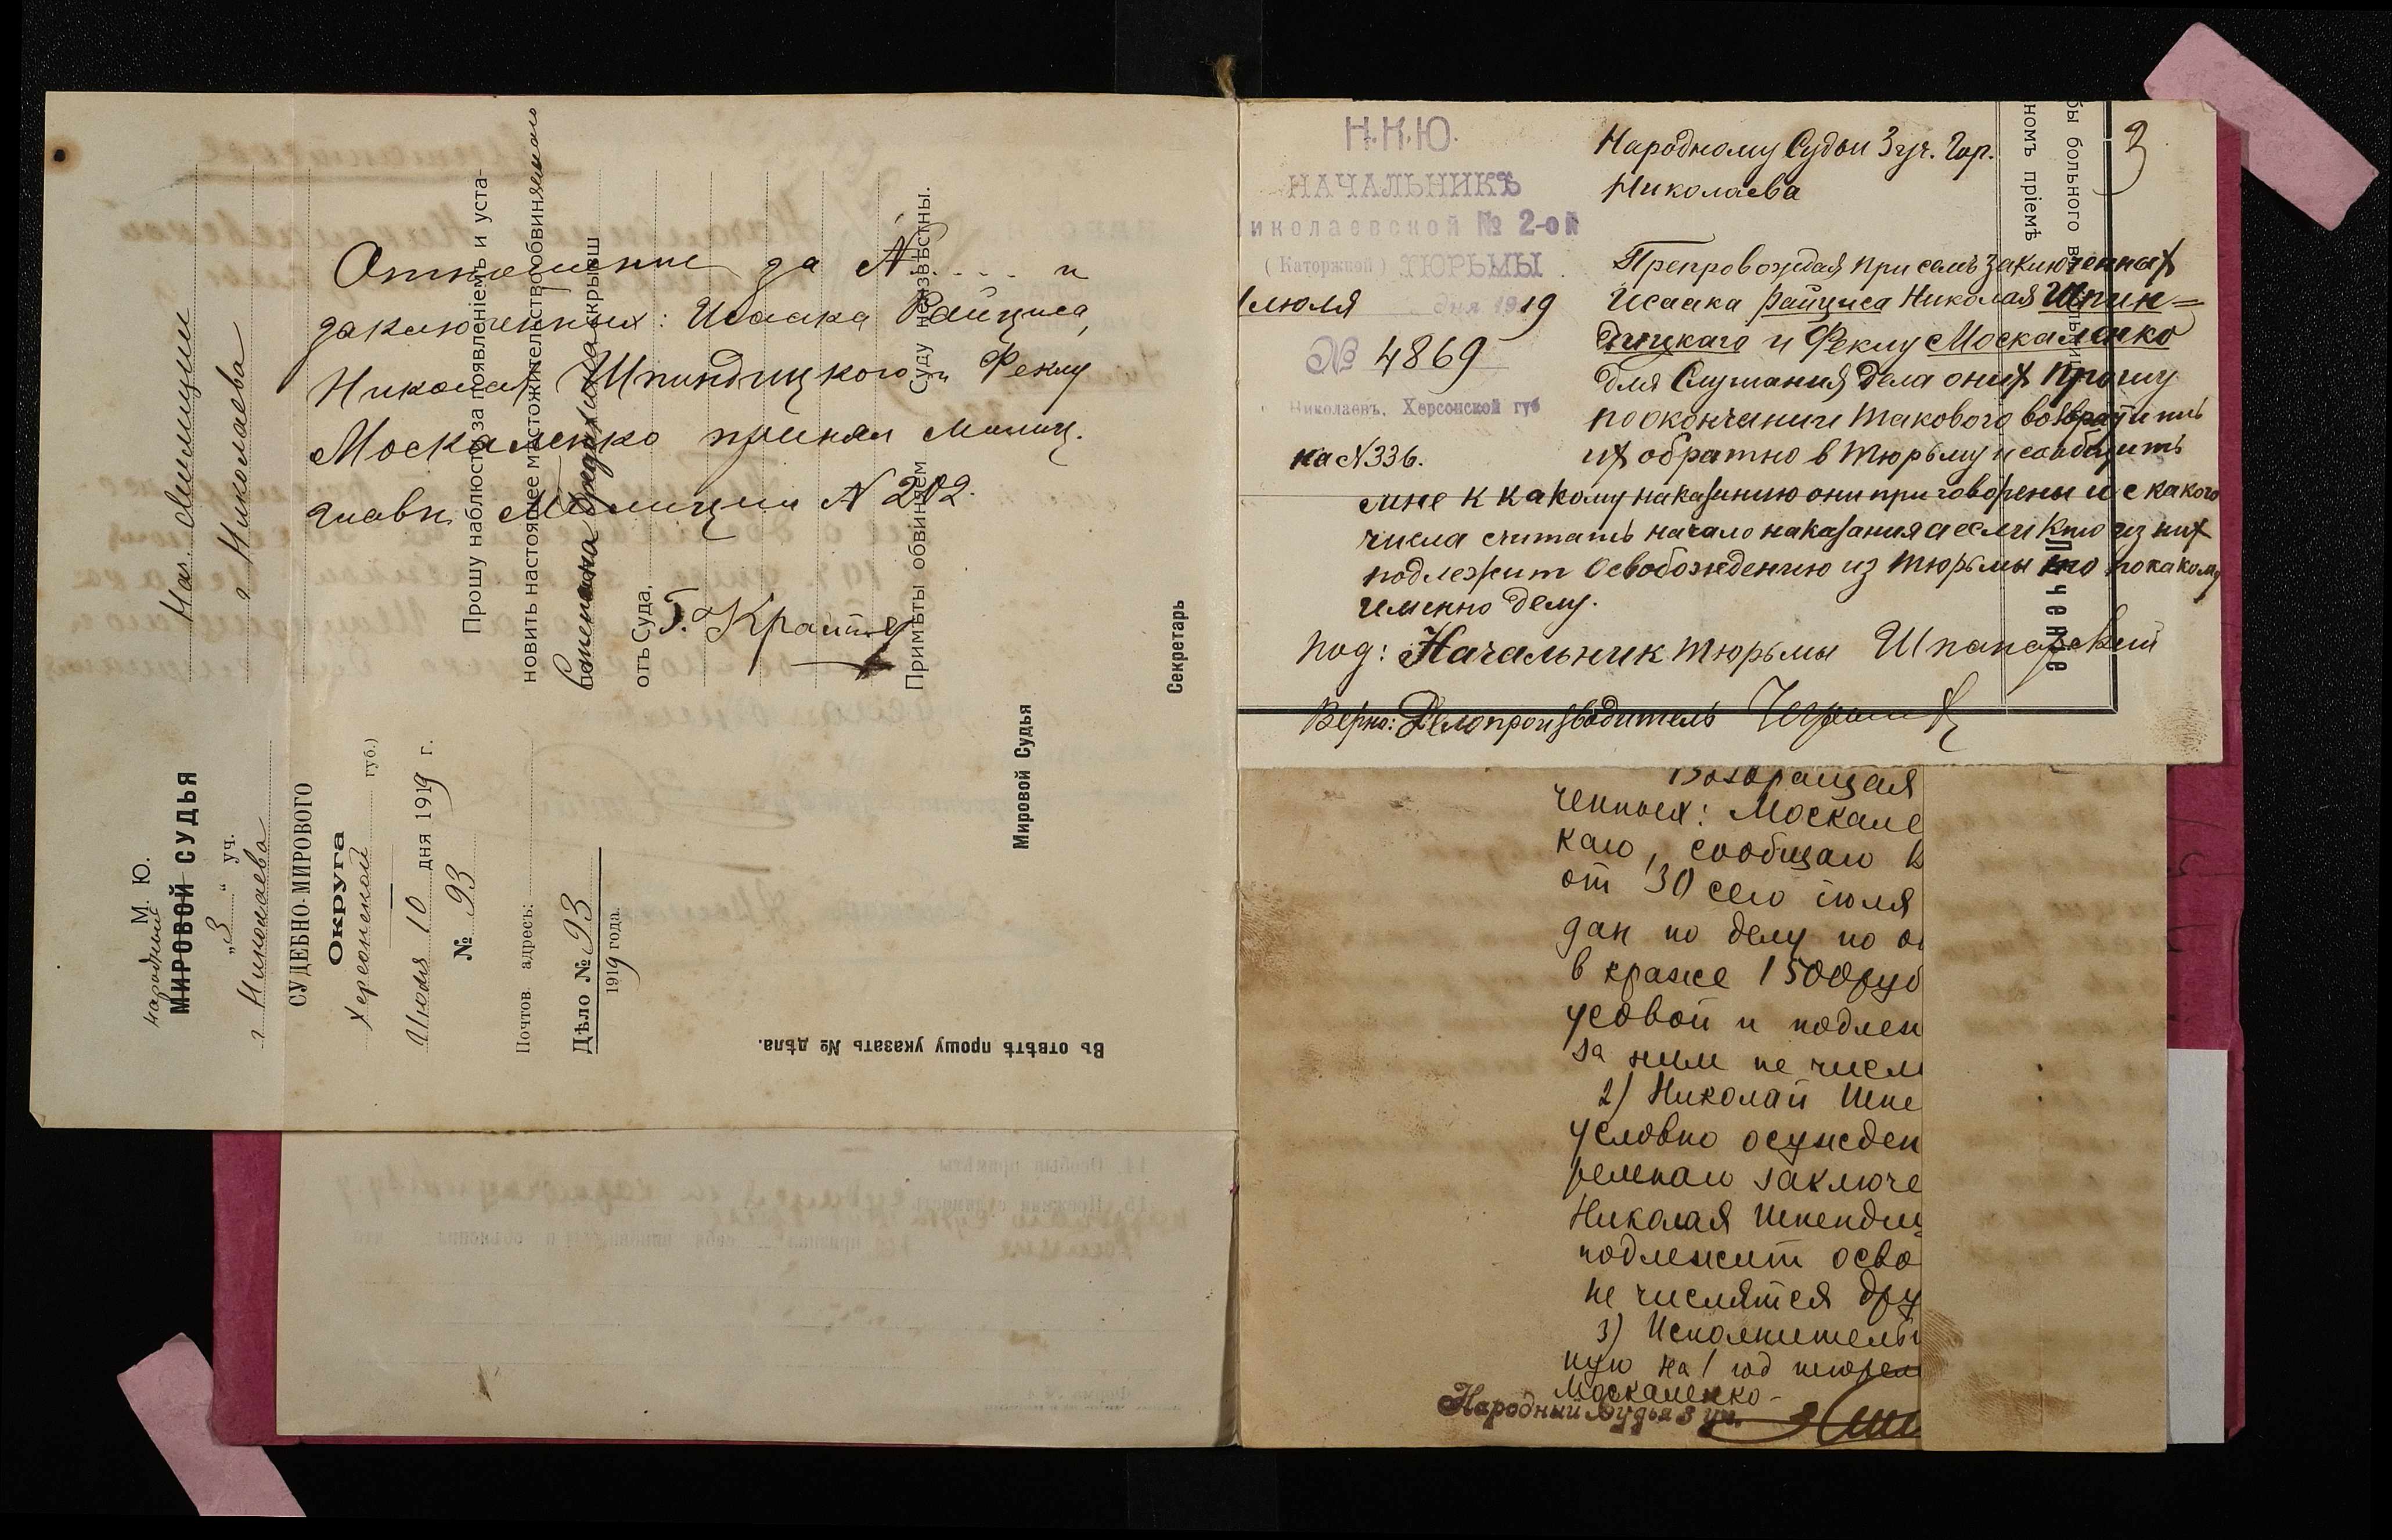 Отношение за №.... и
заключенных: Исаака Райциса,
Николая Шпиндицкого и Феклу
Москаленко принял Милиц.
Главн. Милиции № 202.
Г. Крамер
Нач. Милиции
г. Николаева
М. Ю.
народный
МИРОВОЙ СУДЬЯ
„3“ уч.
г. Николаева
СУДЕБНО-МИРОВОГО
Округа
Херсонской губ.)
Июля 10 дня 1919 г.
№ 93
Почтов. адресъ:
Дѣло № 93
1919 года.
Прошу наблюсти за появленіемъ и уста-
новить настоящее мѣстожительство обвиняемого
скрывш
отъ Суда.
Примѣты обвиняем Суду неизвѣстны.
Мировой Судья
Секретарь
Въ отвѣтѣ прошу указать № дѣла.
3
Н.К.Ю.
НАЧАЛЬНИКЪ
иколаевской № 2-ой
(Каторжной) ТЮРЬМЫ
Июля дня 1919
№ 4869
Николаевъ, Херсонской губ
на N336.
Народному Судьи 3 уч. Гор.
Николаева
Препровождая при семъ заключенных
Исаака Райциса Николая Шпин=
дицкаго и Феклу Москаленко
для Слушания дела оних прошу
по окончании такового возвратить
их обратно в тюрьму и сообщить
мне к какому наказанию они приговорены и с какого
числа считать начало наказания а если кто из них
подлежит освобождению из тюрьмы то по какому
именно делу.
под: Начальник тюрьмы Шпанарский
Верно: Делопроизводитель
номъ пріемѣ
бы больного в
Лѣченіе
Возвращая
ченных: Москале
каго, сообщаю в
от 30 сего июля
дан по делу по о
в краже 1500 руб
усовой и подлеж
за ним не числ
2) Николай Шпе
условно осужден
ремнаго заключе
Николая Шпендиц
подлежит осво
не числятся дру
3) Исполнительн
ную на 1 год тюрем
Москаленко-
Народный Судья 3 уч.